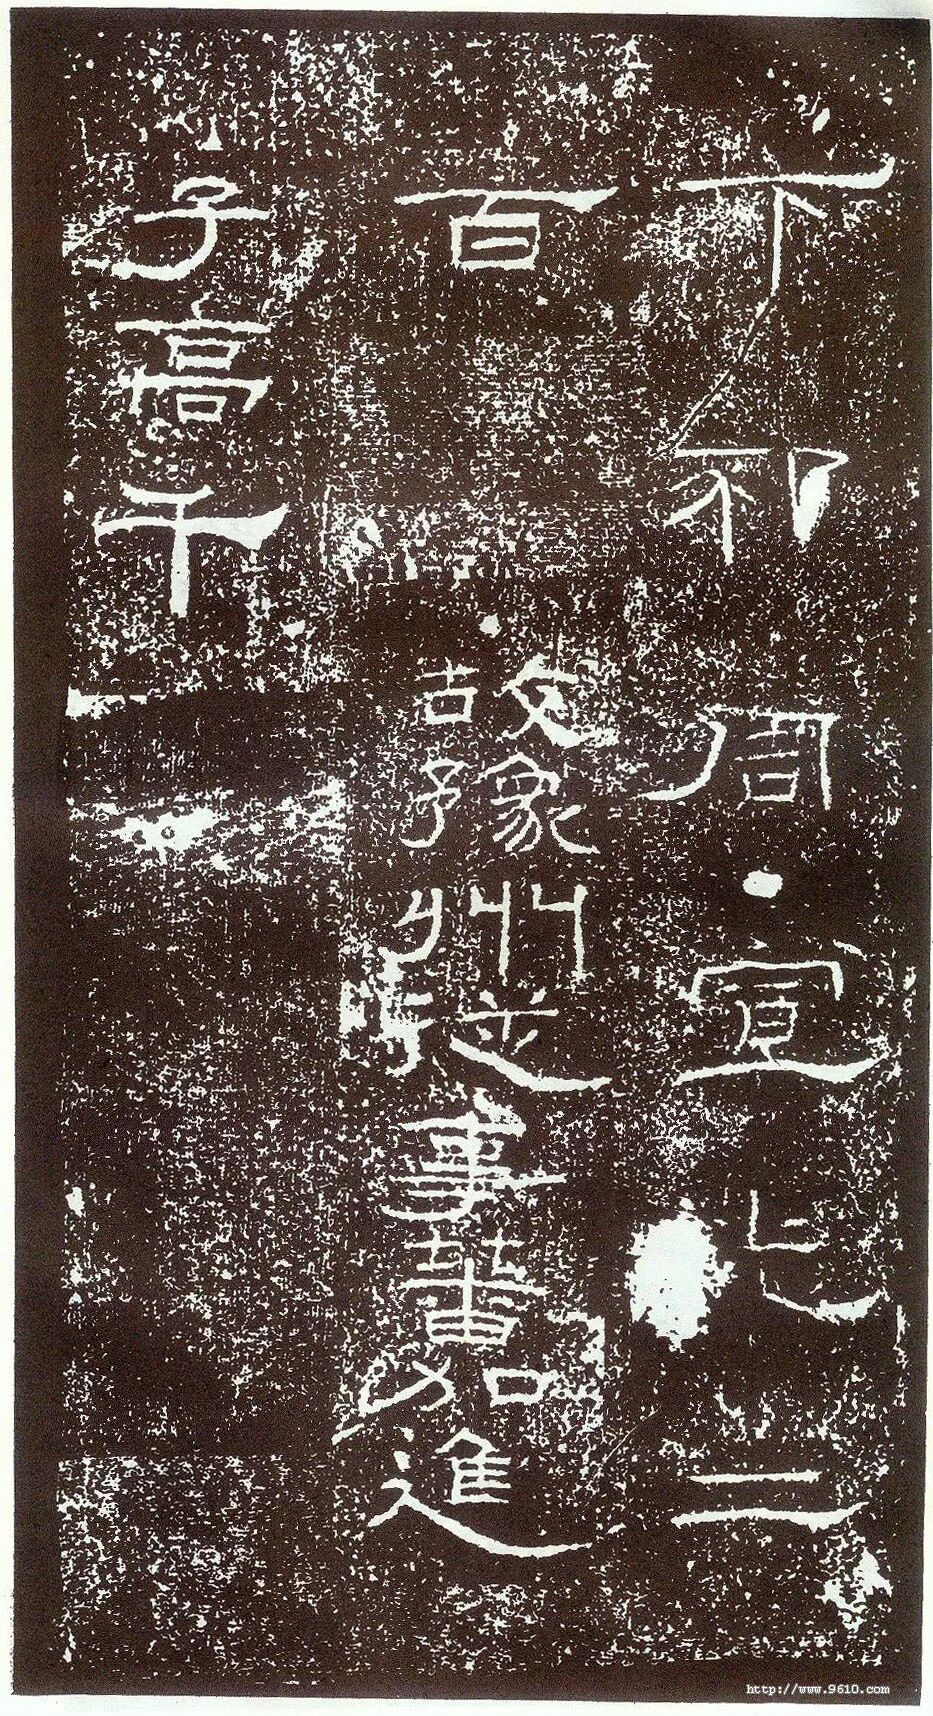 下邳周宣光二
百故豫州從事蕃加進
子高千
http://www.9610.com